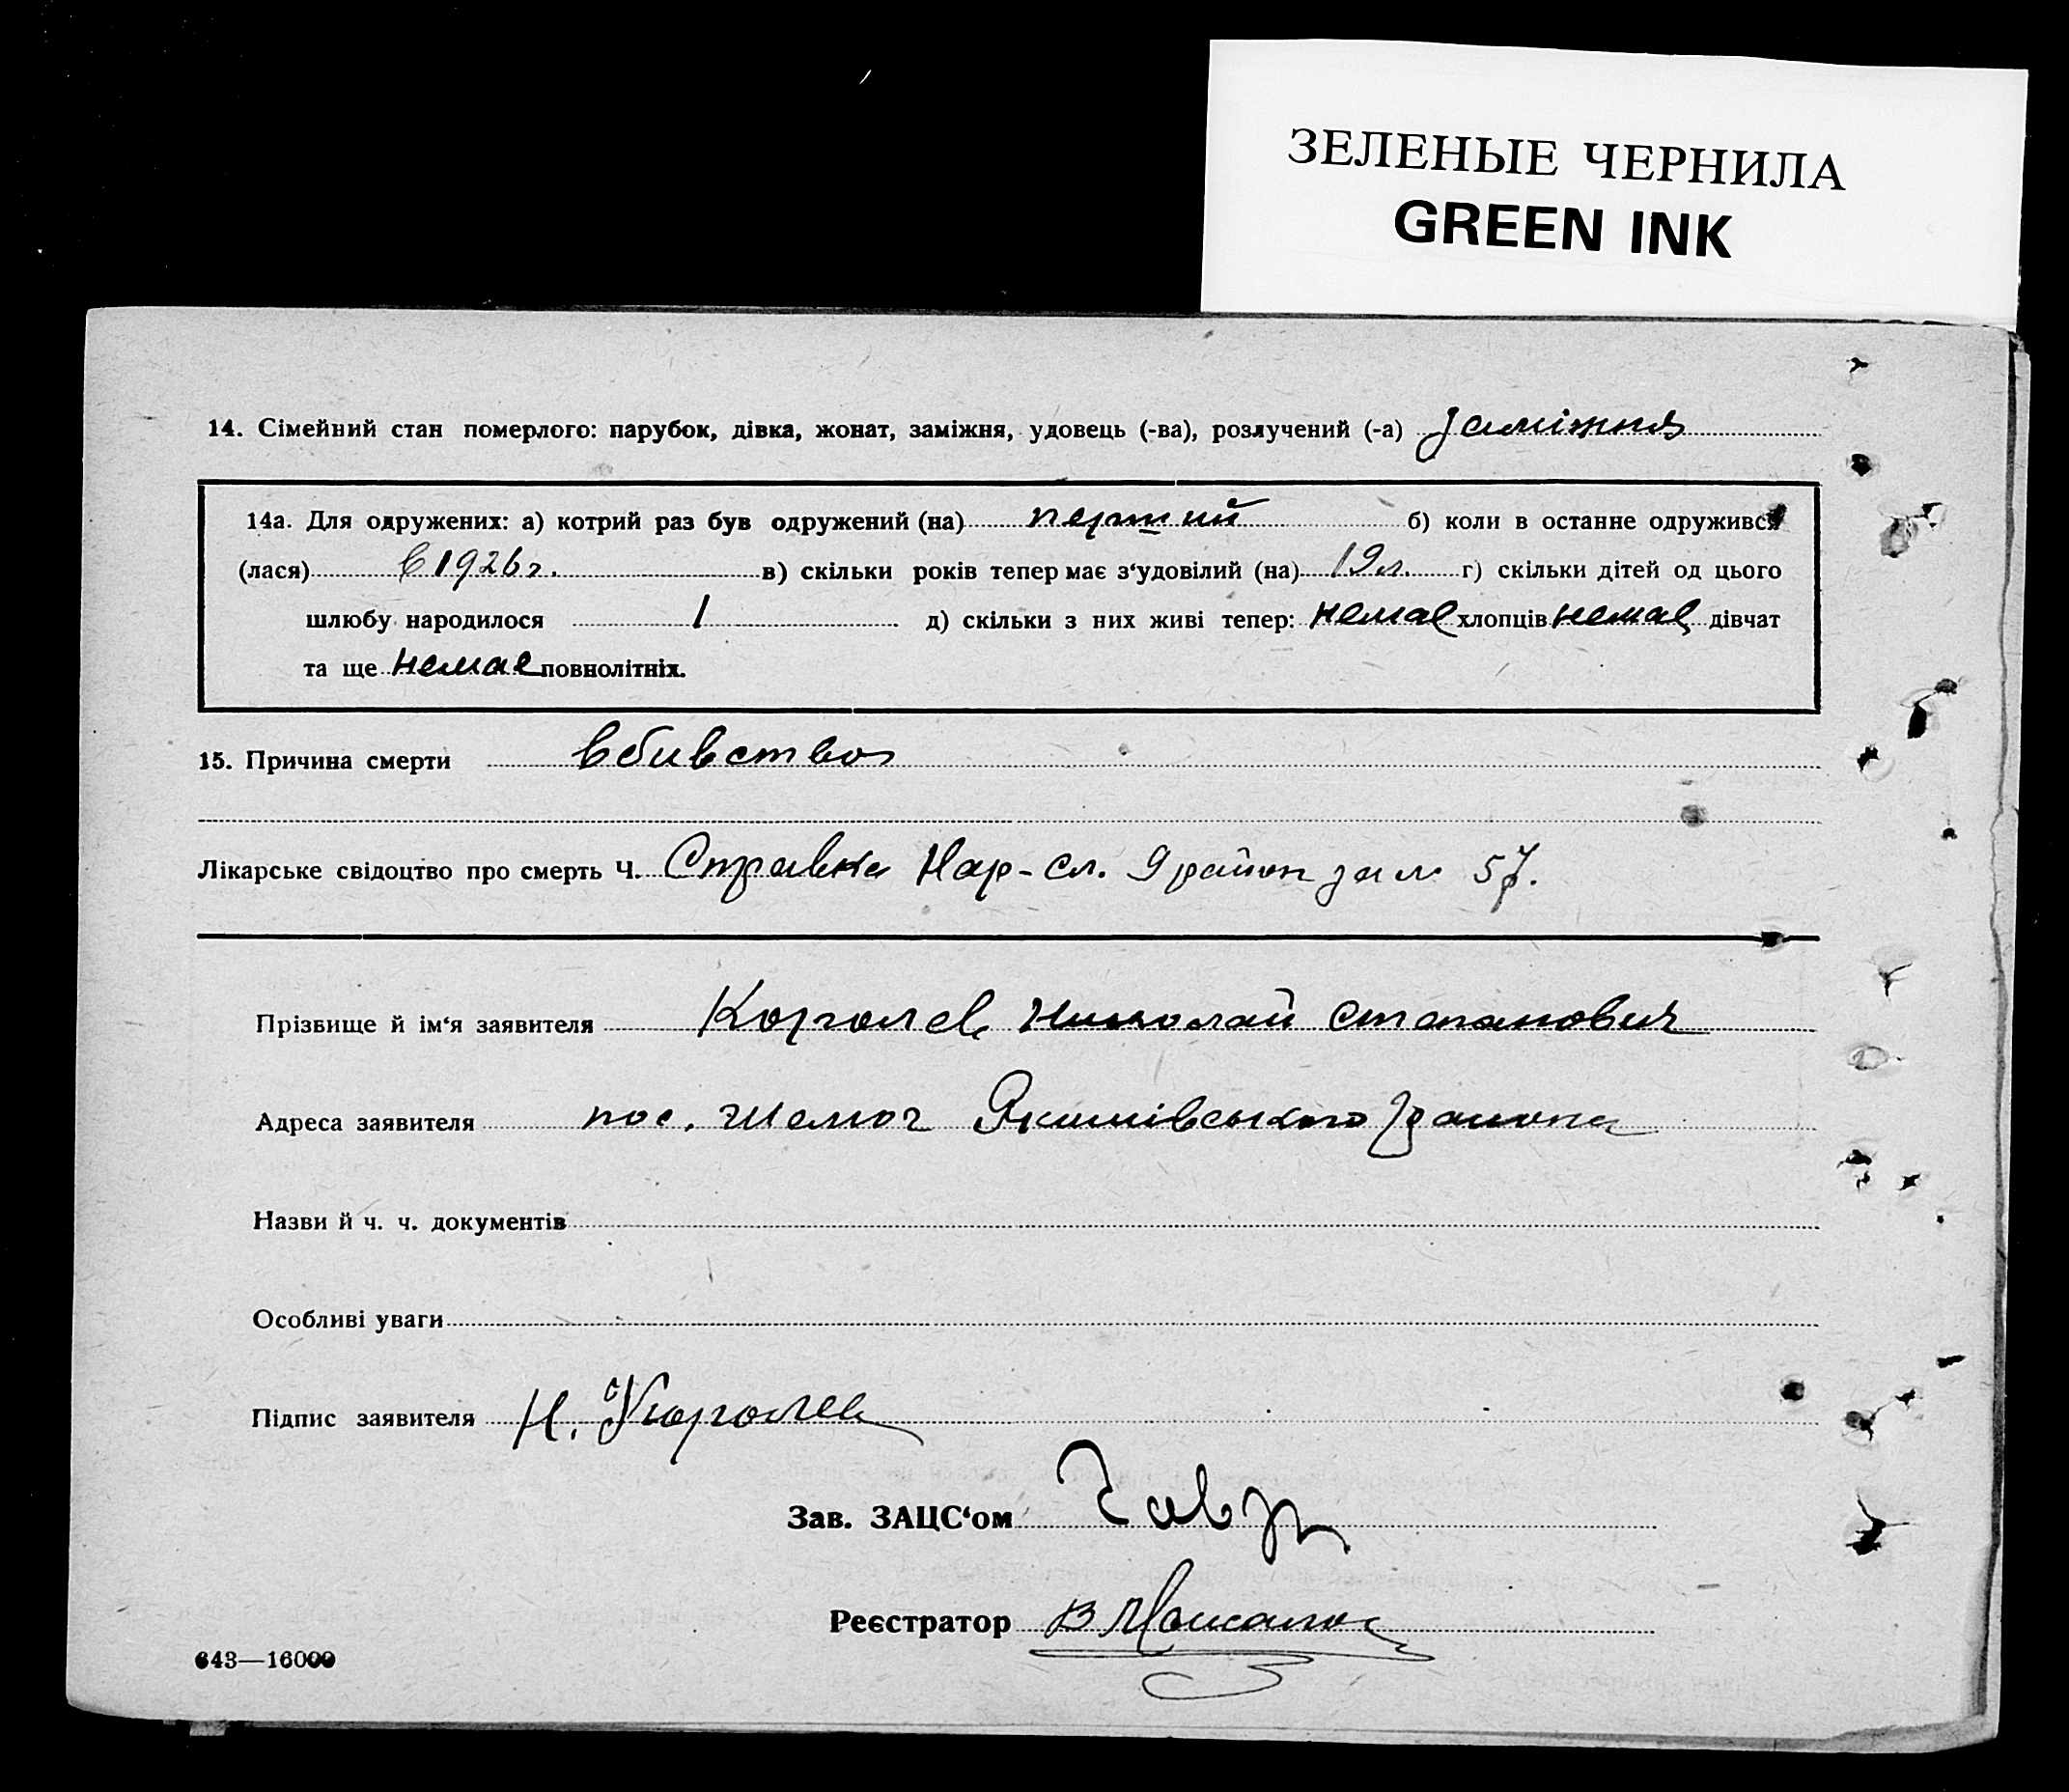 ЗЕЛЕНЫЕ ЧЕРНИЛА
GREEN INK
14. Сімейний стан померлого: парубок, дівка, жонат, заміжня, удовець (-ва), розлучений (-а) заміжня
14а. Для одружених: а) котрий раз був одружений (на) перший б) коли в останне одружився
(лася) в 1926 г. в) скільки років тепер має з‘удовілий (на) 19 л. г) скільки дітей од цього
шлюбу народилося 1 д) скільки з них живі тепер: немає хлопців немає дівчат
та ще немає повнолітніх.
15. Причина смерти вбивство
Лікарське свідоцтво про смерть Ч. Справка Нар-сл. 9 район за № 57.
Прізвище й ім‘я заявителя Королев Николай Степанович
Адреса заявителя пос. Якимівського района
Назви й ч. ч. документів
Особливі уваги
Підпис заявителя Н. Королев
Зав. ЗАЦС‘ом
Реєстратор В
643—16000